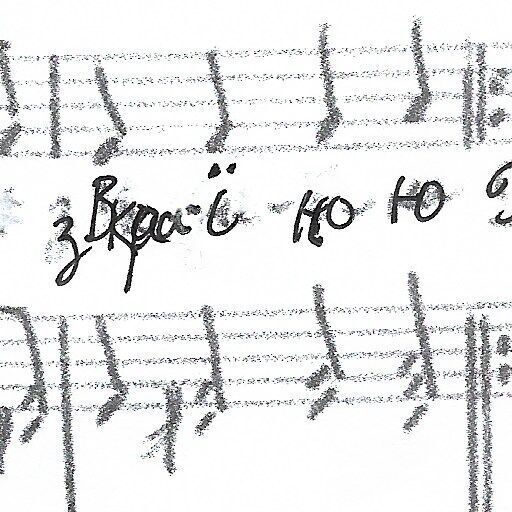 з Вкраа-ї - но ю